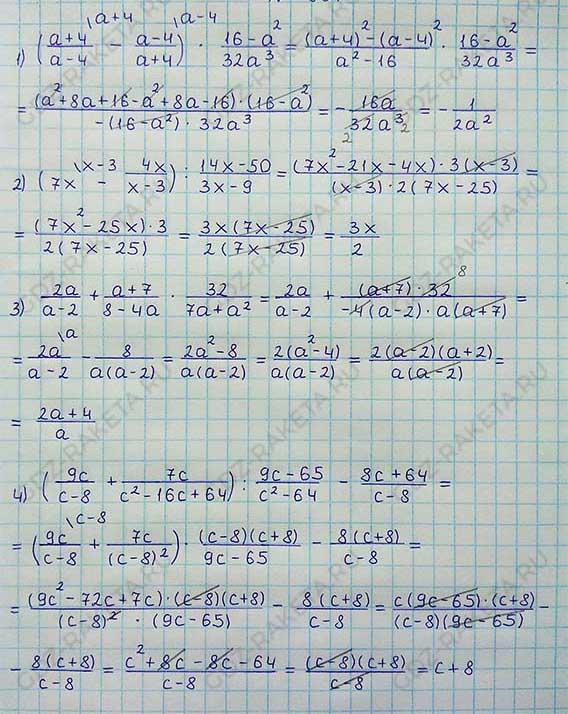 \a+4 \a-4
1) (a+4/a-4 - a-4/a+4) · 16-a²/32a³ = (a+4)²-(a-4)²/a²-16 · 16-a²/32a³ =
= (a²+8a+16-a²+8a-16)·(16-a²)/-(16-a²)·32a³ = - 16a/32a³ 2 2 = - 1/2a²
2) (7x \x-3 - 4x/x-3) : 14x-50/3x-9 = (7x²-21x-4x)·3(x-3)/(x-3)·2(7x-25) =
= (7x²-25x)·3/2(7x-25) = 3x(7x-25)/2(7x-25) = 3x/2
3) 2a/a-2 + a+7/8-4a · 32/7a+a² = 2a/a-2 + (a+7)·32 8/-4(a-2)·a(a+7) =
= 2a \a/a-2 - 8/a(a-2) = 2a²-8/a(a-2) = 2(a²-4)/a(a-2) = 2(a-2)(a+2)/a(a-2) =
= 2a+4/a
4) (9c/c-8 + 7c/c²-16c+64) : 9c-65/c²-64 - 8c+64/c-8 =
= (9c \c-8/c-8 + 7c/(c-8)²) · (c-8)(c+8)/9c-65 - 8(c+8)/c-8 =
= (9c²-72c+7c)·(c-8)(c+8)/(c-8)²·(9c-65) - 8(c+8)/c-8 = c(9c-65)·(c+8)/(c-8)(9c-65) -
- 8(c+8)/c-8 = c²+8c-8c-64/c-8 = (c-8)(c+8)/c-8 = c+8
GDZ-RAKETA.RU